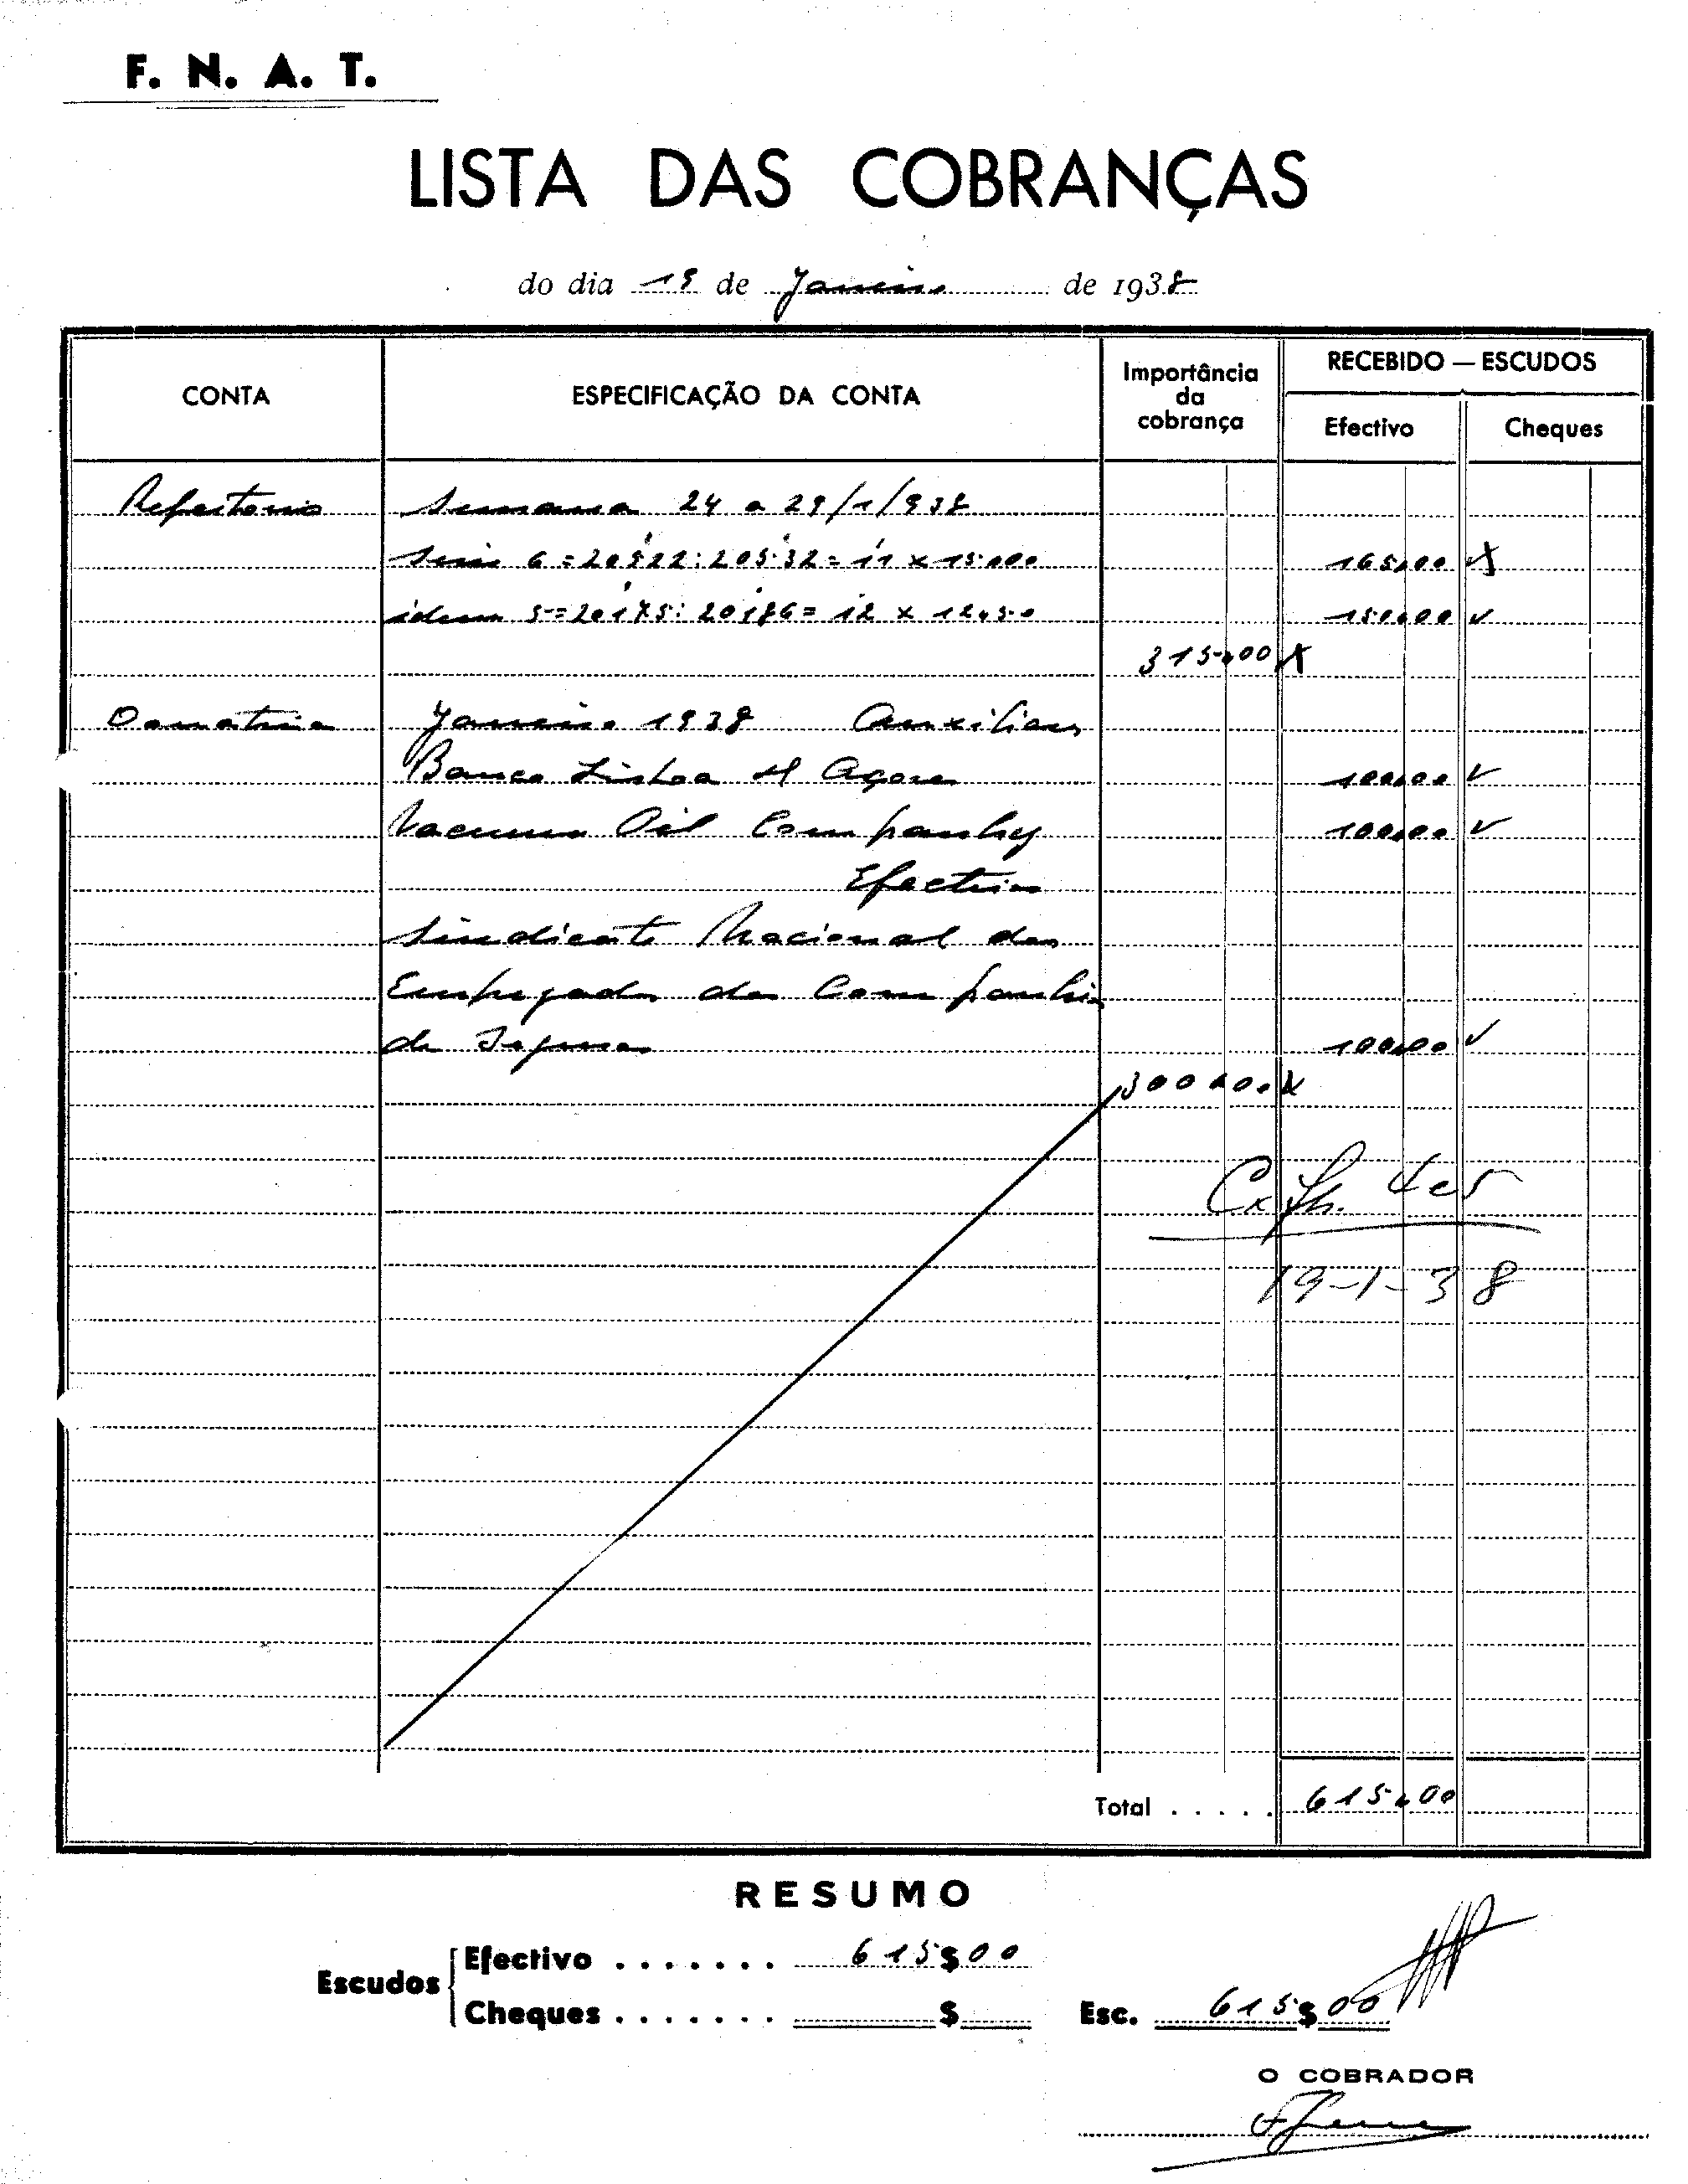 F. N. A. T.
LISTA DAS COBRANÇAS
do dia 19 de Janeiro de 1938
CONTA
ESPECIFICAÇÃO DA CONTA
Importância da cobrança
RECEBIDO — ESCUDOS
Efectivo
Cheques
Refeitorio Semana 24 a 29/1/938
Serie 6 = 20522 : 20532 = 11 x 15.000 165,00
idem 5 = 20175 : 20186 = 12 x 12,50 150,00
315,00
Janeiro 1938 Auxiliares
Banco Lisboa & Açores 100,00
Vacuum Oil Companhy 100,00
Efectivos
Sindicato Nacional dos
Empregados das Companhias
de Seguros 100,00
300,00
19-1-38
Total . . . . . 615,00
RESUMO
Escudos
Efectivo . . . . . . . 615$00
Cheques . . . . . . . $
Esc. 615$00
O COBRADOR